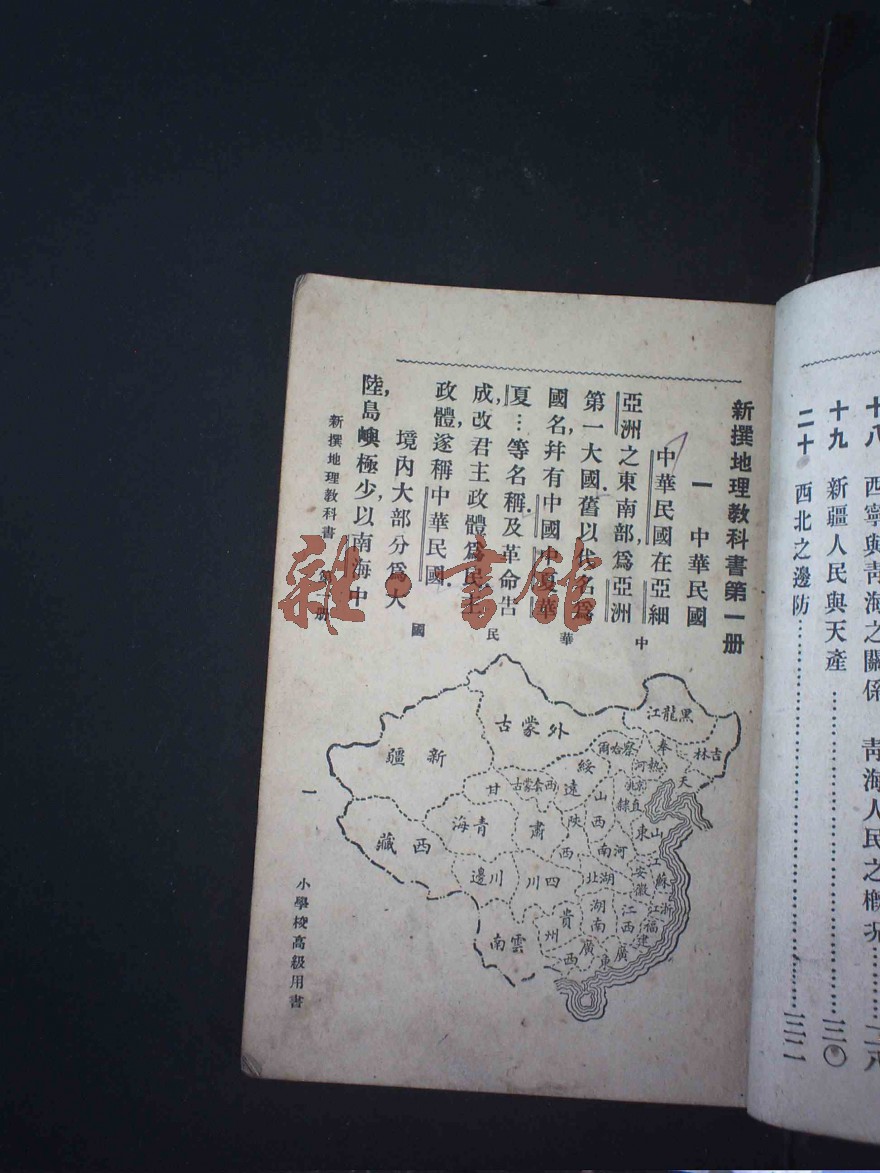 十八 西寧與青海之關係 青海人民之概况…………二八
十九 新疆人民與天產…………三〇
二十 西北之邊防…………三二
新撰地理教科書第一册
一 中華民國
中華民國在亞細
亞洲之東南部，爲亞洲
第一大國。舊以代名爲
國名，幷有中國中夏華
夏…等名稱。及革命告
成，改君主政體爲民主
政體，遂稱中華民國。
境內大部分爲大
陸，島嶼極少，以南海中
中華民國
黑龍江
吉林
奉天
外蒙古
新疆
察哈爾
熱河
綏遠
京兆
直隸
甘肅
西套蒙古
山西
陝西
山東
青海
西藏
河南
江蘇
安徽
川邊
四川
湖北
湖南
浙江
江西
福建
貴州
雲南
廣西
廣東
新撰地理教科書 第一册
一
小學校高級用書
雜·書館